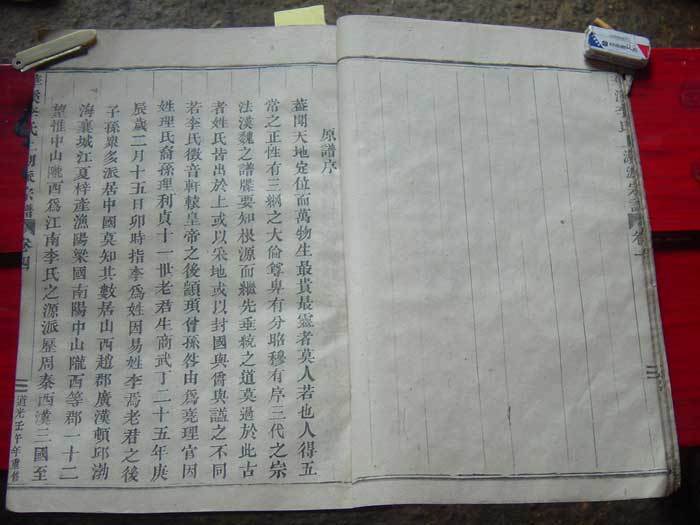 原譜序
蓋聞天地定位而萬物生最貴最靈者莫人若也人得五
常之正性有三綱之大倫尊卑有分昭穆有序三代之宗
法漢魏之譜牒要知根源而繼先垂統之道莫過於此古
者姓氏皆出於上或以采地或以封國與爵與諡之不同
若李氏徵音軒轅皇帝之後顓頊曾孫咎由為堯理官因
姓理氏裔孫理利貞十一世老君生商武丁二十五年庚
辰歲二月十五日卯時指李為姓因易姓李焉老君之後
子孫衆多派居中國莫知其數居山西趙郡廣漢頓邱渤
海襄城江夏梓產漁陽梁國南陽中山隴西等郡一十二
望惟中山隴西為江南李氏之源派歷周秦西漢三國至
李氏
宗譜
卷四
道光壬午年重修